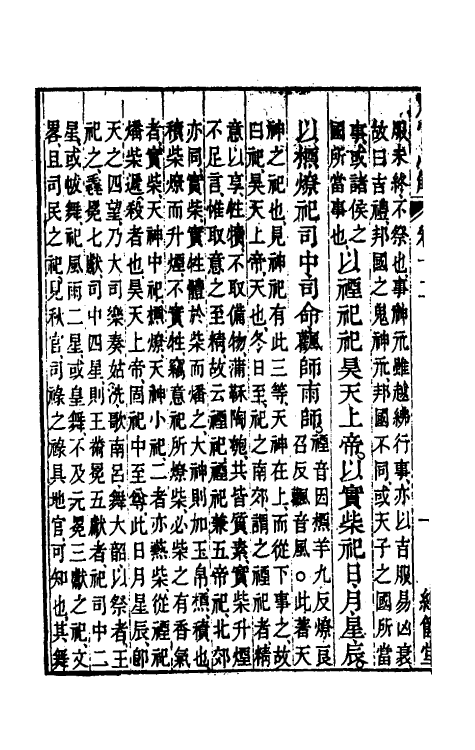 卷十二
一
服未終不祭也事神示雖越紼行事亦以吉服易凶衰
故曰吉禮邦國之鬼神示邦國不同或天子之國所當
事或諸侯之
國所當事也
以禋祀祀昊天上帝以實柴祀日月星辰
以槱燎祀司中司命飌師雨師
禋音因槱羊九反燎良
召反飌音風○此著天
神之祀也見神祀有此三等天神在上而從下事之故
曰祀昊天上帝天也冬日至祀之南郊謂之禋祀者精
意以享牲犢不取備物蒲秣陶匏共皆質素實柴升煙
不足言惟取意之至精故云禋祀禋祀兼五帝祀北郊
亦同實柴實牲體於柴而燔之大神則加玉帛槱積也
積柴燎而升煙不實牲竊意祀所燎柴必柴之有香氣
者實柴天神中祀槱燎天神小祀二者亦燕柴從禋祀
燔柴遞殺者也昊天上帝固祀中至尊此日月星辰卽
天之四望乃大司樂奏姑洗歌南呂舞大韶以祭者王
祀之毳冕七獻司中四星則王黹冕五獻者祀司中二
星或帗舞祀風雨二星或皇舞不及元冕三獻之祀文
畧且司民之祀見秋官司祿之祿具地官可知也其舞